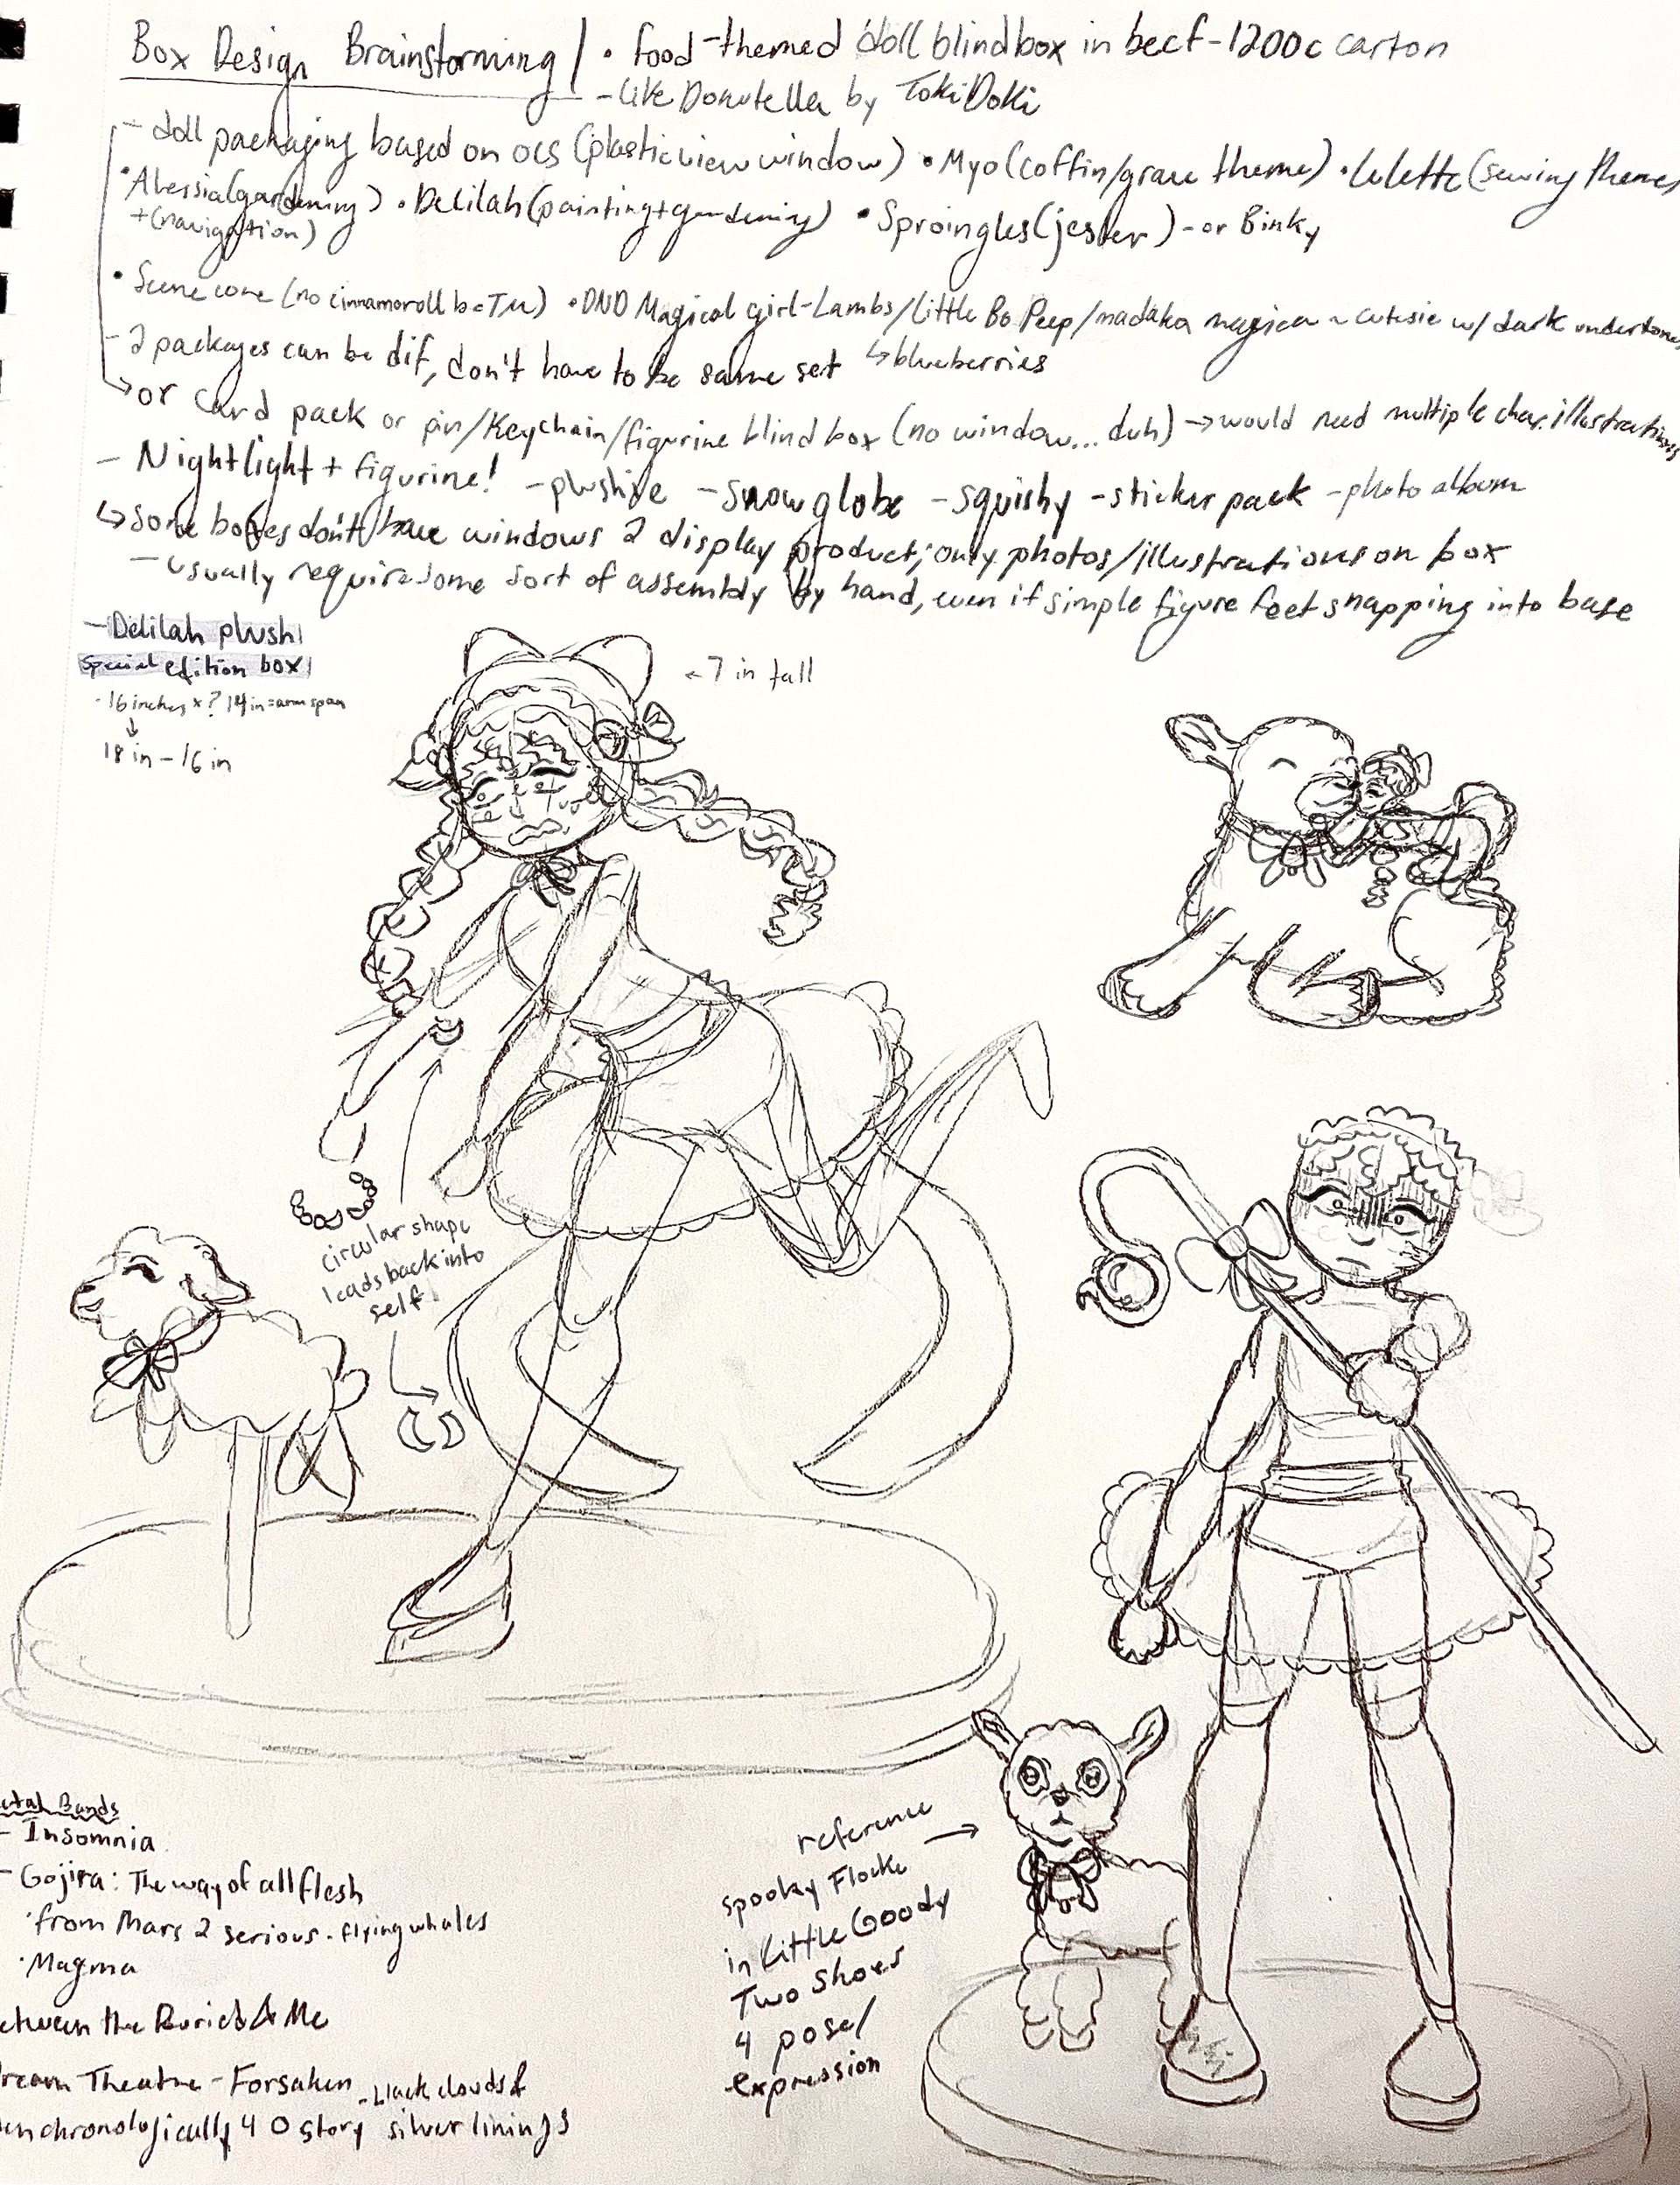 Box Design Brainstorming / • food-themed doll blindbox in becf-1200c carton
- like Donutella by TokiDoki
- doll packaging based on ocs (plastic view window) • Myo (coffin/grave theme) • Lulette (sewing themes
• Alessia (gardening) • Delilah (painting + gardening) • Sproingles (jester) - or Binky
+ (navigation)
• Scene core (no cinnamoroll b.c TM) • DND Magical girl - Lambs/Little Bo Peep/madoka magica ~ cutesie w/ dark undertones
- 2 packages can be dif, don't have to be same set ↳ blueberries
→ or card pack or pin/keychain/figurine blind box (no window... duh) → would need multiple char. illustrations
- Nightlight + figurine! - plushie - snowglobe - squishy - sticker pack - photo album
↳ some boxes don't have windows 2 display product; only photos/illustrations on box
- usually require some sort of assembly by hand, even if simple figure feet snapping into base
- Delilah plush
special edition box
- 16 inches x ? 14 in = arm span
↓
18 in - 16 in
← 7 in tall
circular shape
leads back into
self
reference
spooky Flocke
in Little Goody
Two Shoes
4 pose/
expression
etal Bands
- Insomnia
- Gojira: The way of all flesh
• from Mars 2 serious - flying whales
• Magma
etween the Buried & Me
ream Theatre - Forsaken - black clouds &
en chronologically 4 O story silver linings